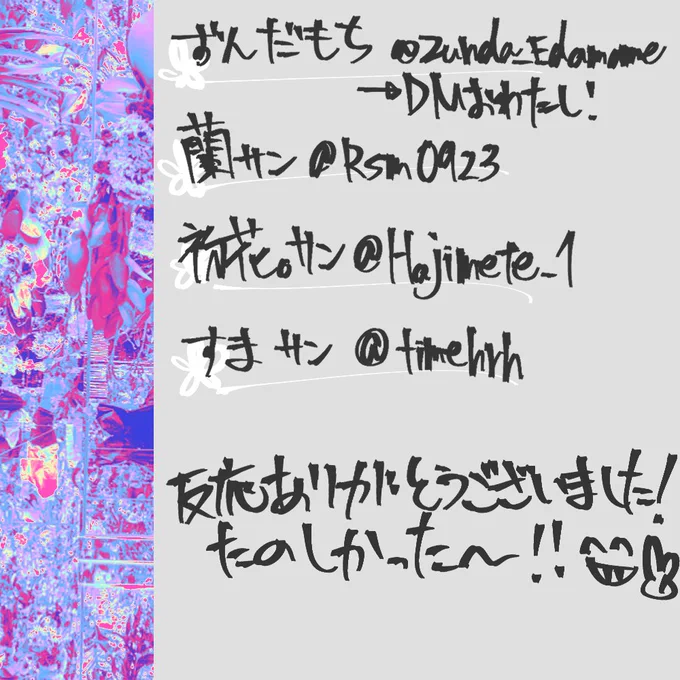 ずんだもち @Zunda_Edamame
→DMおわたし!
蘭サン @Rsm0923
初花。サン @Hajimete_1
すまサン @timehrh
反応ありがとうございました!
たのしかったへ!!